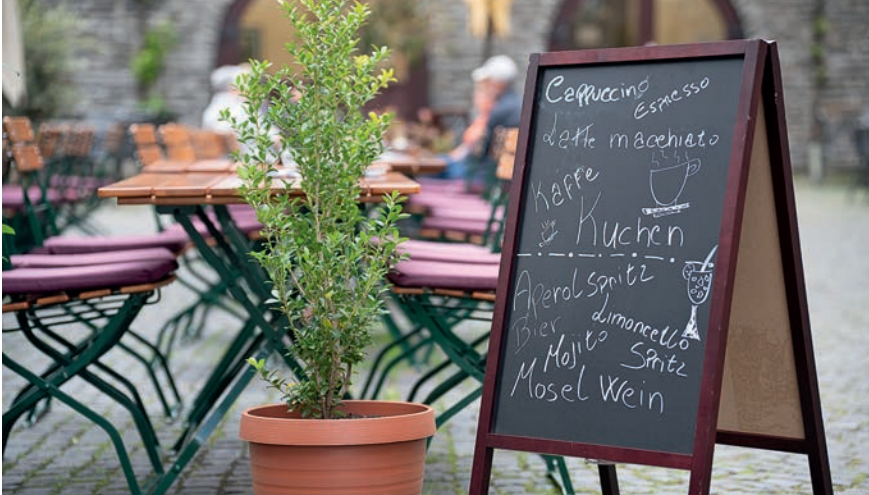 Cappuccino
Espresso
Latte macchiato
Kaffe
Kuchen
Aperol Spritz
Bier
Limoncello
Spritz
Mojito
Mosel Wein